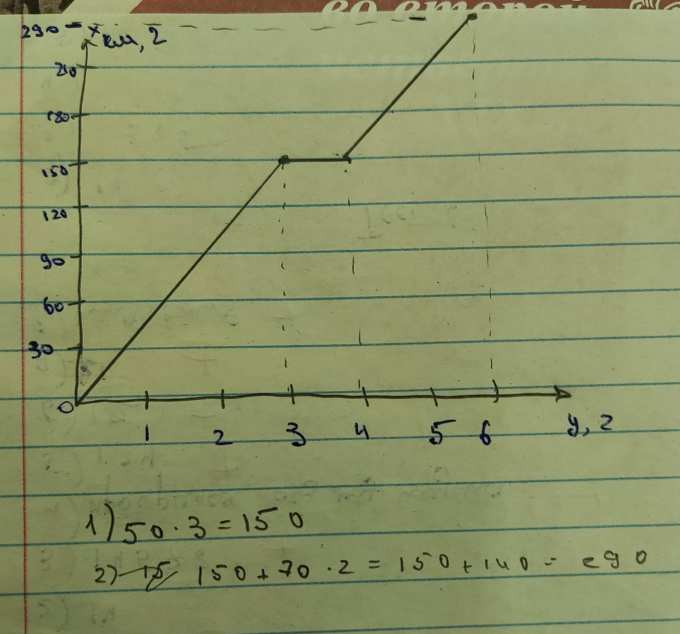 во второй
290 x км, 2
210
180
150
120
90
60
30
0
1 2 3 4 5 6 y, 2
1) 50 · 3 = 150
2) 150 + 70 · 2 = 150 + 140 = 290